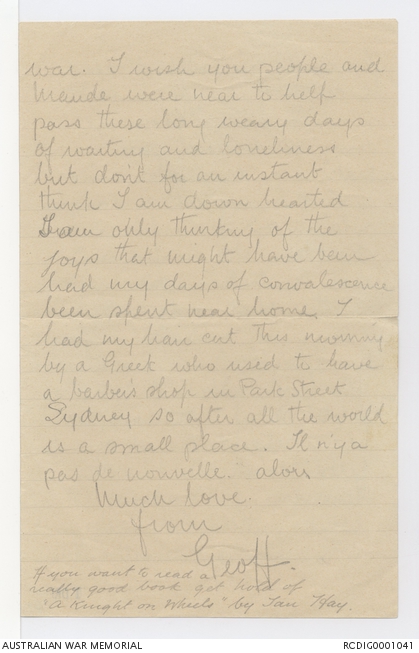 war. I wish you people and
Maude were near to help
pass these long weary days
of waiting and loneliness
but dont for an instant
think I am down hearted
I am only thinking of the
joys that might have been
had my days of convalescence
been spent near home. I
had my hair cut this morning
by a Greek who used to have
a barber's shop in Park Street
Sydney so after all the world
is a small place. Il n'y a
pas de nouvelle. alors
Much love.
from
Geoff.
If you want to read a
really good book get hold of
"A Knight on Wheels" by Ian Hay.
AUSTRALIAN WAR MEMORIAL
RCDIG0001041